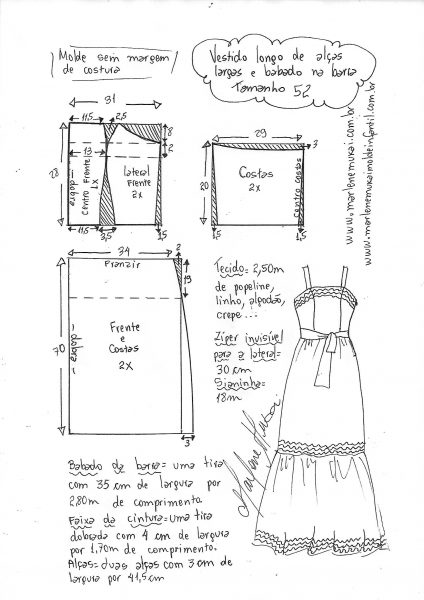 Molde sem margem
de costura
Vestido longo de alças
largas e babado na barra
Tamanho 52
www.marlenemukai.com.br
www.marlenemukaimoldeinfantil.com.br
31
11,5
2,5
8
2
13
28
dobra
Centro Frente
1x
lateral
Frente
2x
11,5
3,5
1,5
29
3
20
Costas
2x
Centro costas
1,5
1,5
34
2
Franzir
19
70
dobra
Frente
e
Costas
2x
3
Tecido= 2,50m
de popeline,
linho, algodão,
crepe...
Ziper invisível
para a lateral=
30 cm
Sianinha=
18m
Marlene Mukai
Babado da barra= uma tira
com 35 cm de largura por
2,80m de comprimento.
Faixa da cintura= uma tira
dobrada com 4 cm de largura
por 1,70m de comprimento.
Alças= duas alças com 3 cm de
largura por 41,5 cm